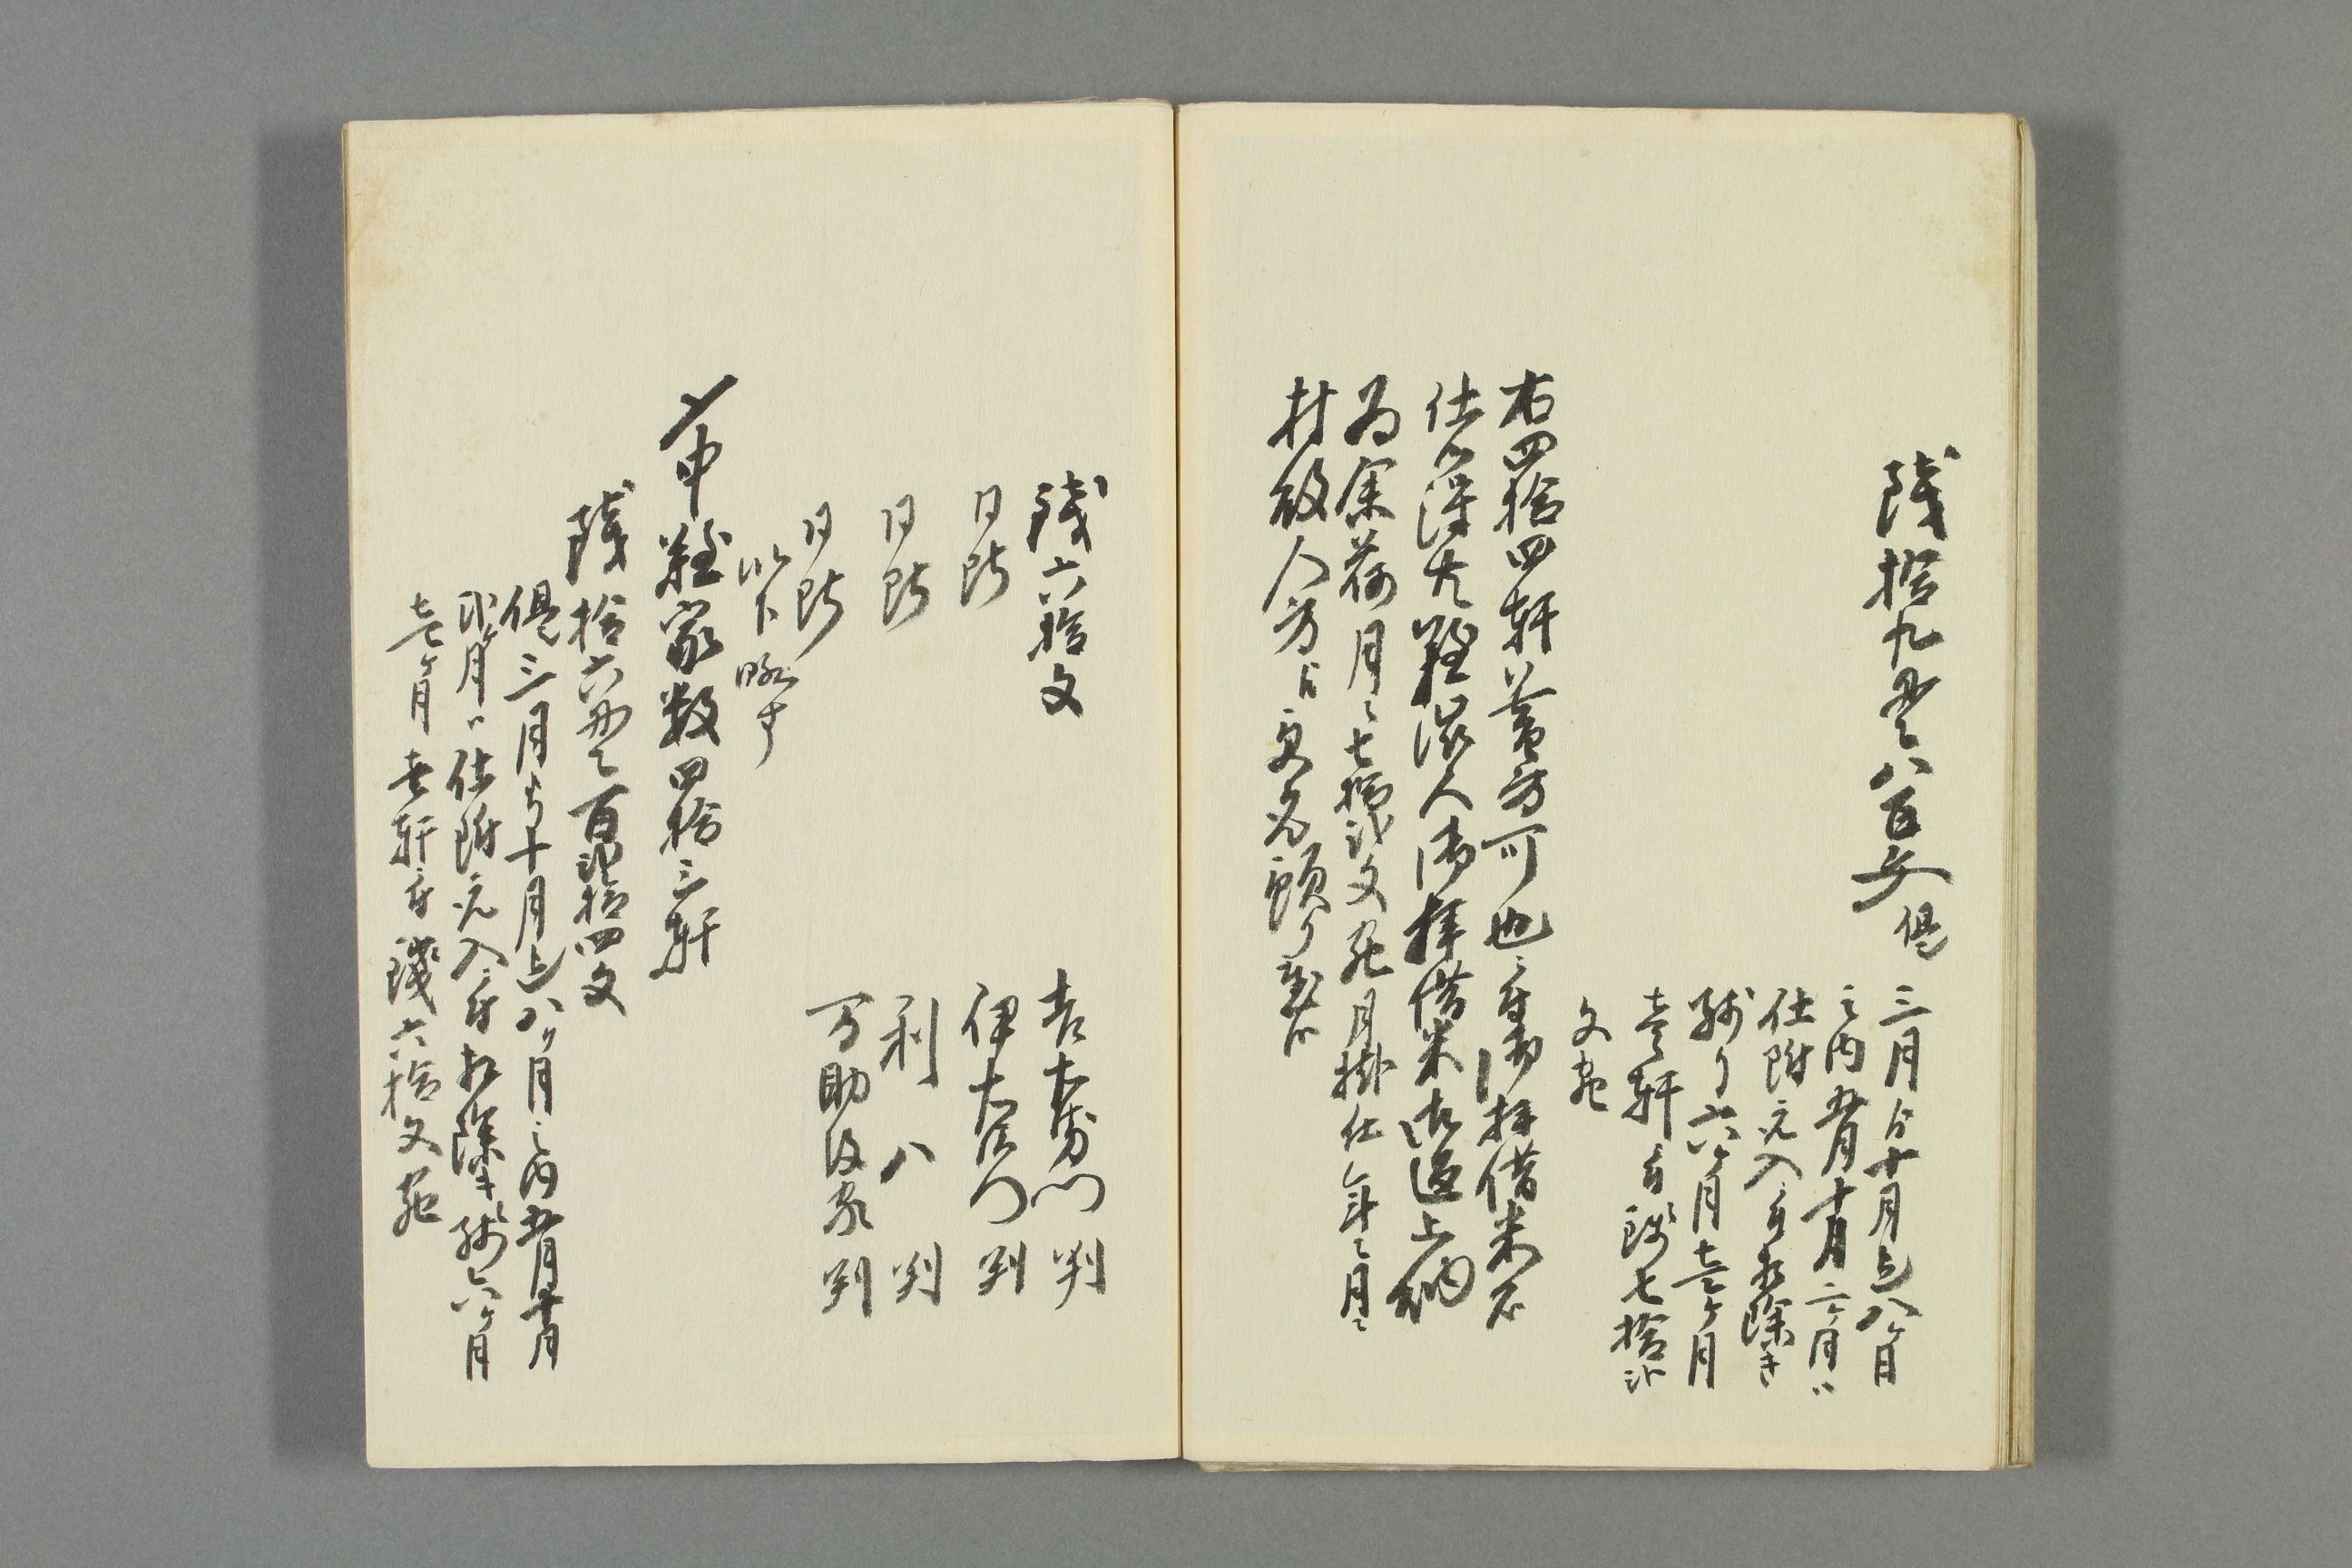 銭拾九貫八百文 但
三月ゟ十月迄八ヶ月
之内五月十月二ヶ月ハ
仕附元入ニ付相除き
残り六ヶ月壱ヶ月
壱軒ニ付銭七拾弐
文宛
右四拾四軒 方可也ニ付御拝借米不
仕 得共難渋人御拝借米御返上納
為 荷月々七拾弐文宛月掛仕年々月々
村役人方ゟ
銭六拾文
 吉左衛門 判
同断 伊右衛門 判
同断 利八 判
同断 万助後家 判
以下略す
〆申難家数四拾三軒
銭拾六貫百弐拾四文
但三月ゟ十月迄八ヶ月之内五月十月
弐ヶ月ハ仕附元入ニ付相除キ残六ヶ月
壱ヶ月壱軒ニ付銭六拾文宛